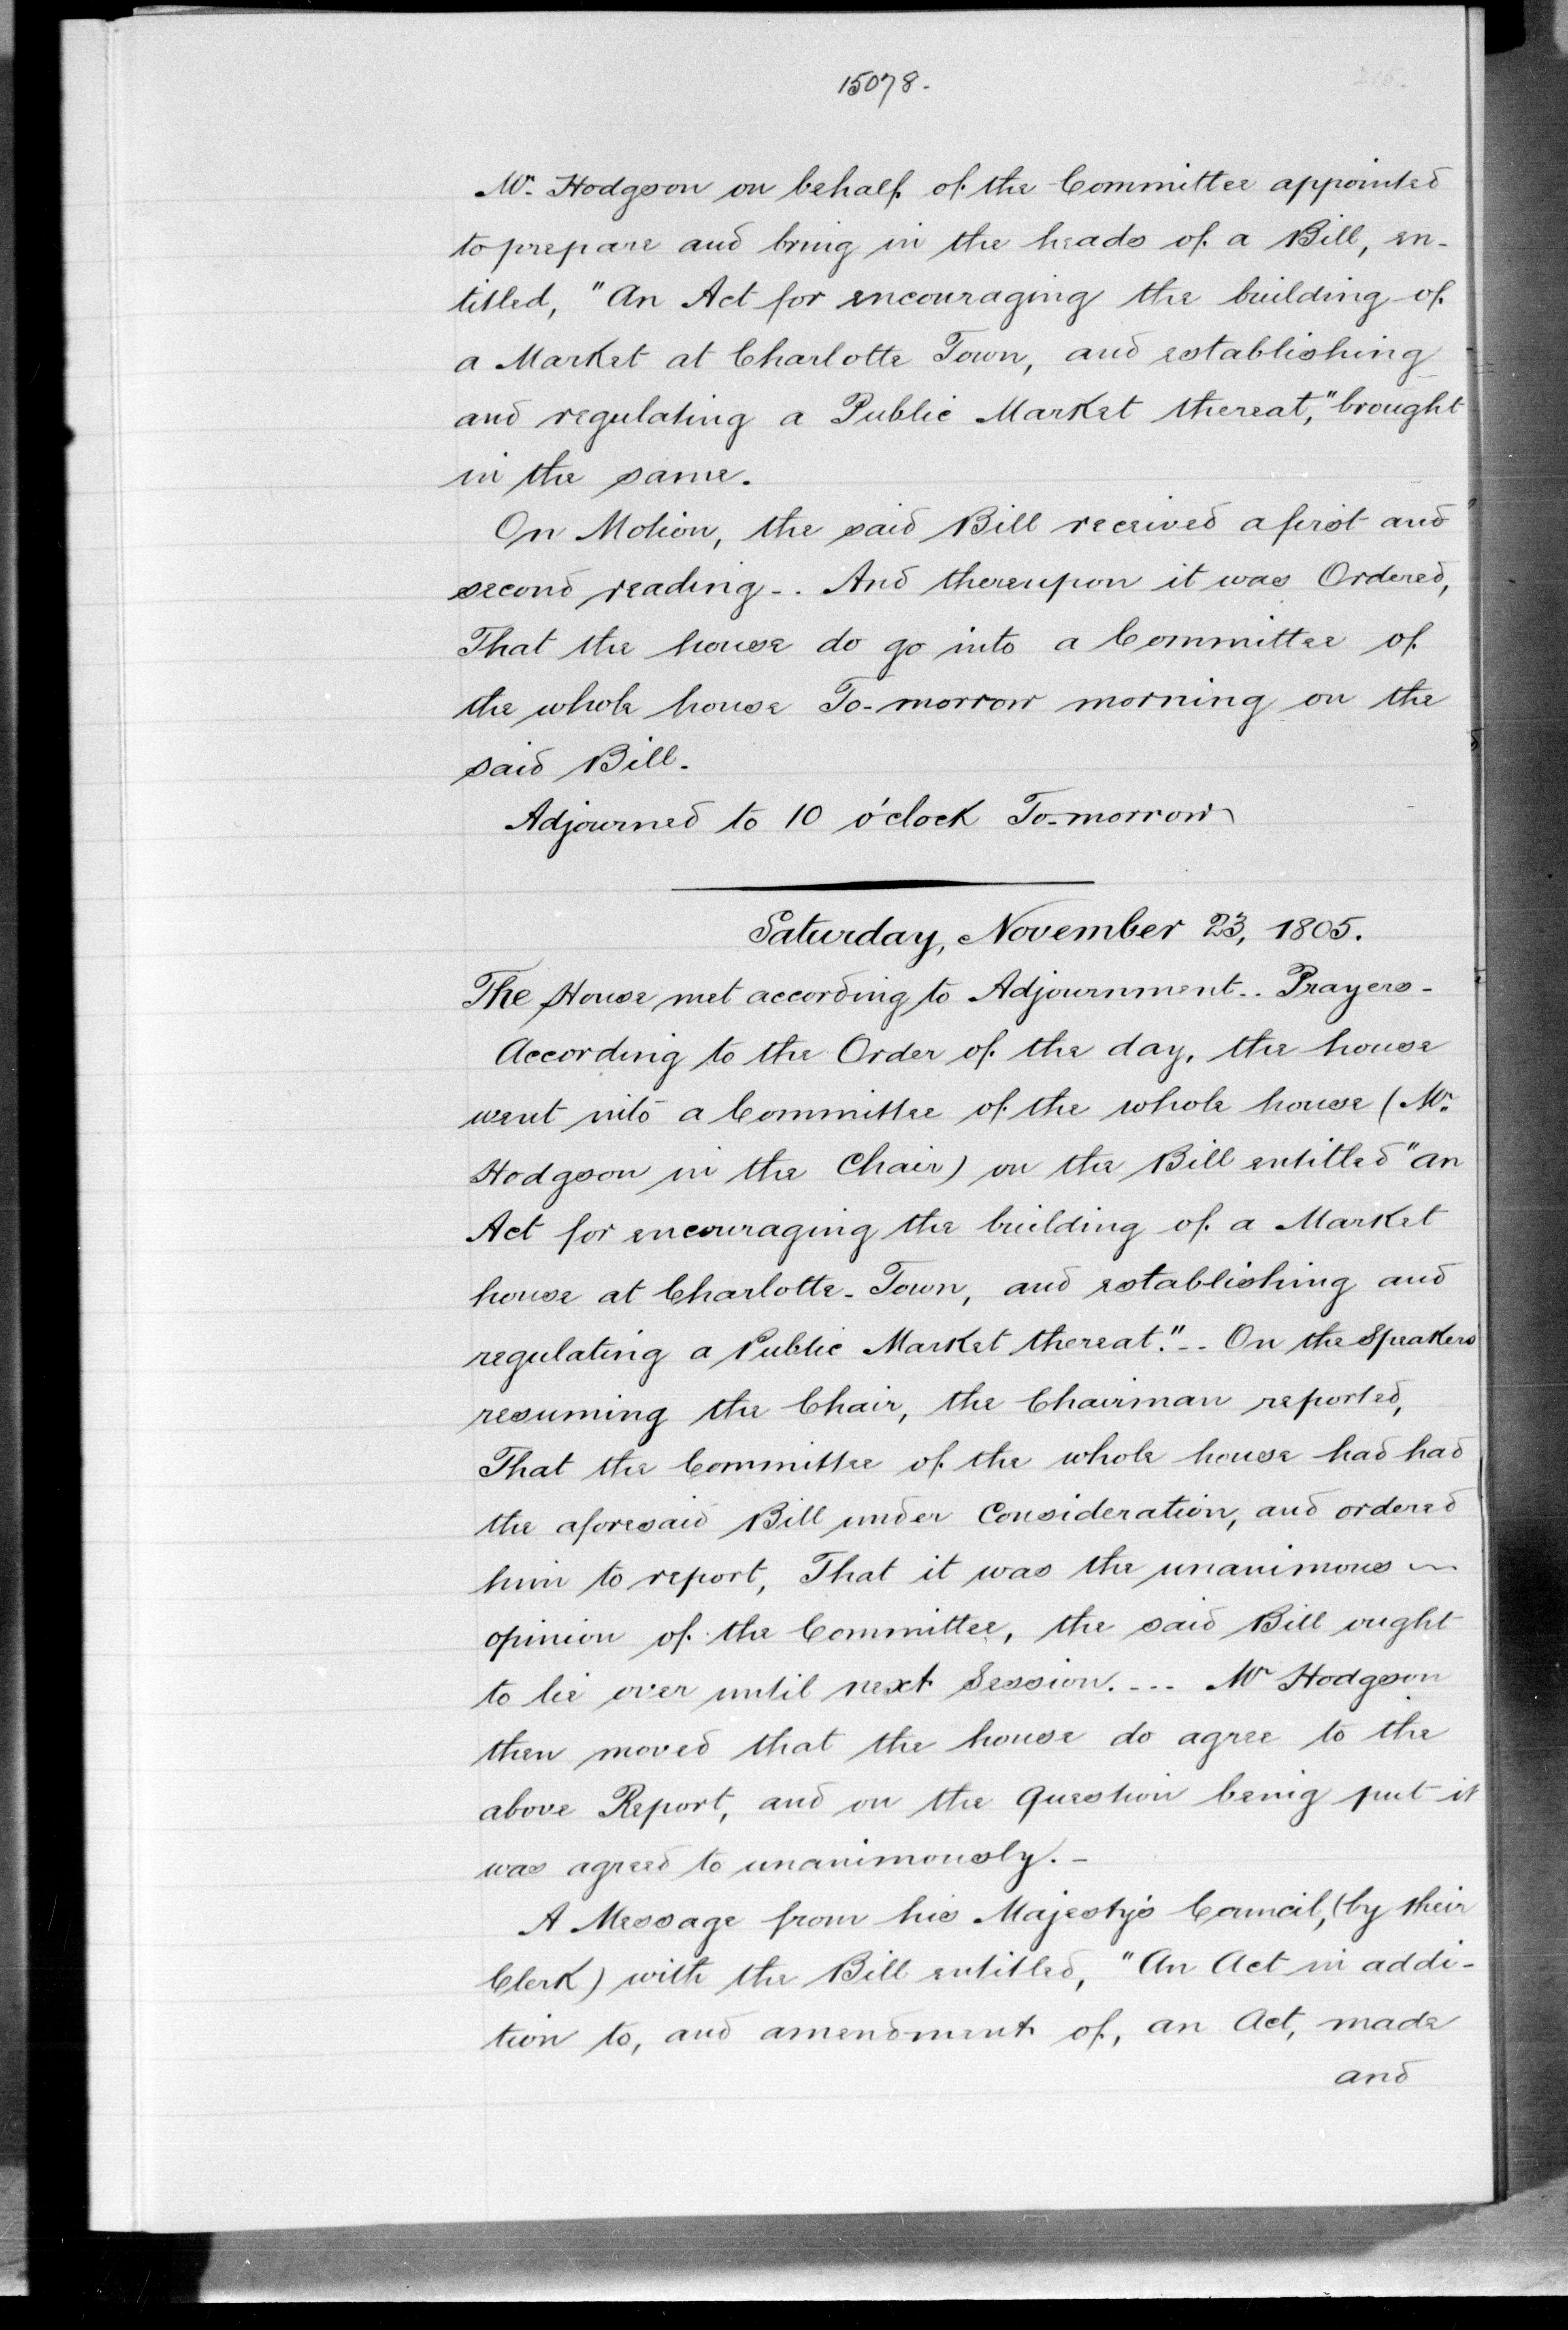 15078.
Mr. Hodgson on behalf of the Committee appointed
to prepare and bring in the heads of a Bill, en-
titled, "An Act for encouraging the building of
a Market at Charlotte Town, and establishing
and regulating a Public Market thereat," brought
in the same.
On Motion, the said Bill received a first and
second reading -. And thereupon it was Ordered,
That the house do go into a Committee of
the whole house To-morrow morning on the
said Bill.
Adjourned to 10 o'clock To-morrow
Saturday, November 23, 1805.
The House met according to Adjournment -. Prayers -
According to the Order of the day, the house
went into a Committee of the whole house (Mr.
Hodgson in the Chair) on the Bill entitled "an
Act for encouraging the building of a Market
house at Charlotte-Town, and establishing and
regulating a Public Market thereat." -- On the Speakers
resuming the Chair, the Chairman reported,
That the Committee of the whole house had had
the aforesaid Bill under Consideration, and ordered
him to report, That it was the unanimous
opinion of the Committee, the said Bill ought
to lie over until next Session. --- Mr Hodgson
then moved that the house do agree to the
above Report, and on the Question being put it
was agreed to unanimously. -
A Message from his Majesty's Council, (by their
Clerk) with the Bill entitled, "An Act in addi-
tion to, and amendment of, an Act, made
and